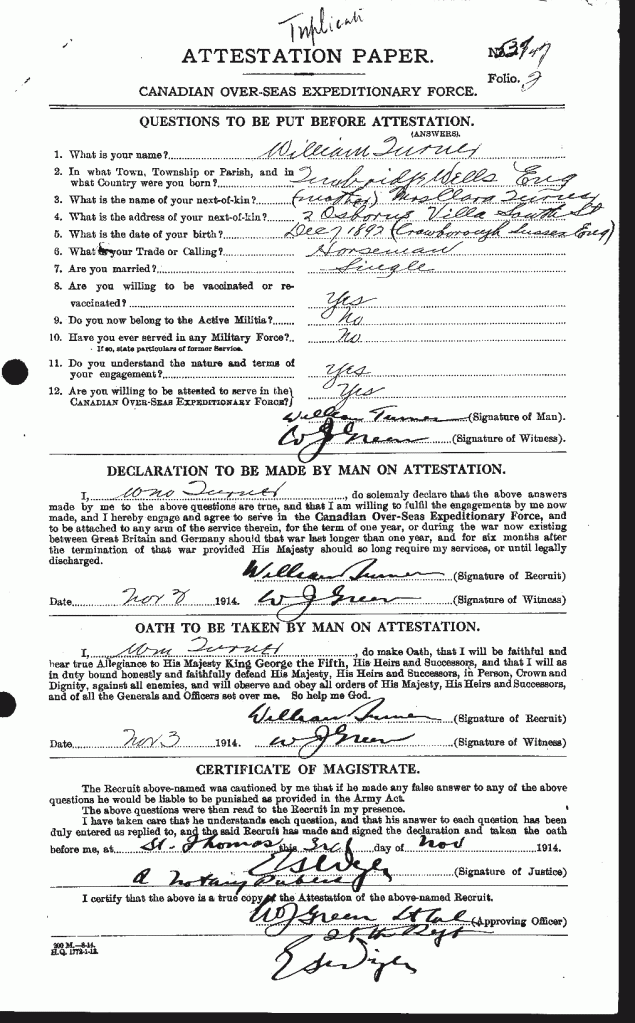 Triplicate
ATTESTATION PAPER.
No.
Folio.
CANADIAN OVER-SEAS EXPEDITIONARY FORCE.
QUESTIONS TO BE PUT BEFORE ATTESTATION.
(ANSWERS).
1. What is your name? William Turner
2. In what Town, Township or Parish, and in
what Country were you born? Tunbridge Wells Eng
3. What is the name of your next-of-kin? (mother) Mrs Clara Turner
4. What is the address of your next-of-kin? 2 Osborne Villa South St
5. What is the date of your birth? Dec 7 1892 (Crowborough Sussex Eng)
6. What is your Trade or Calling? Horseman
7. Are you married? Single
8. Are you willing to be vaccinated or re-
vaccinated? Yes
9. Do you now belong to the Active Militia? No
10. Have you ever served in any Military Force? No.
If so, state particulars of former Service.
11. Do you understand the nature and terms of
your engagement? Yes
12. Are you willing to be attested to serve in the
CANADIAN OVER-SEAS EXPEDITIONARY FORCE? Yes
William Turner (Signature of Man).
W J Green (Signature of Witness).
DECLARATION TO BE MADE BY MAN ON ATTESTATION.
I, Turner, do solemnly declare that the above answers
made by me to the above questions are true, and that I am willing to fulfil the engagements by me now
made, and I hereby engage and agree to serve in the Canadian Over-Seas Expeditionary Force, and
to be attached to any arm of the service therein, for the term of one year, or during the war now existing
between Great Britain and Germany should that war last longer than one year, and for six months after
the termination of that war provided His Majesty should so long require my services, or until legally
discharged.
William Turner (Signature of Recruit)
Date Nov 1914. W J Green (Signature of Witness)
OATH TO BE TAKEN BY MAN ON ATTESTATION.
I, Wm Turner, do make Oath, that I will be faithful and
bear true Allegiance to His Majesty King George the Fifth, His Heirs and Successors, and that I will as
in duty bound honestly and faithfully defend His Majesty, His Heirs and Successors, in Person, Crown and
Dignity, against all enemies, and will observe and obey all orders of His Majesty, His Heirs and Successors,
and of all the Generals and Officers set over me. So help me God.
William Turner (Signature of Recruit)
Date Nov 3 1914. W J Green (Signature of Witness)
CERTIFICATE OF MAGISTRATE.
The Recruit above-named was cautioned by me that if he made any false answer to any of the above
questions he would be liable to be punished as provided in the Army Act.
The above questions were then read to the Recruit in my presence.
I have taken care that he understands each question, and that his answer to each question has been
duly entered as replied to, and the said Recruit has made and signed the declaration and taken the oath
before me, at St. Thomas this 3rd day of Nov 1914.
(Signature of Justice)
A Notary Public
I certify that the above is a true copy of the Attestation of the above-named Recruit.
W J Green Lt Col (Approving Officer)
25th Regt
200 M.—8-14.
H.Q. 1772-1-12.